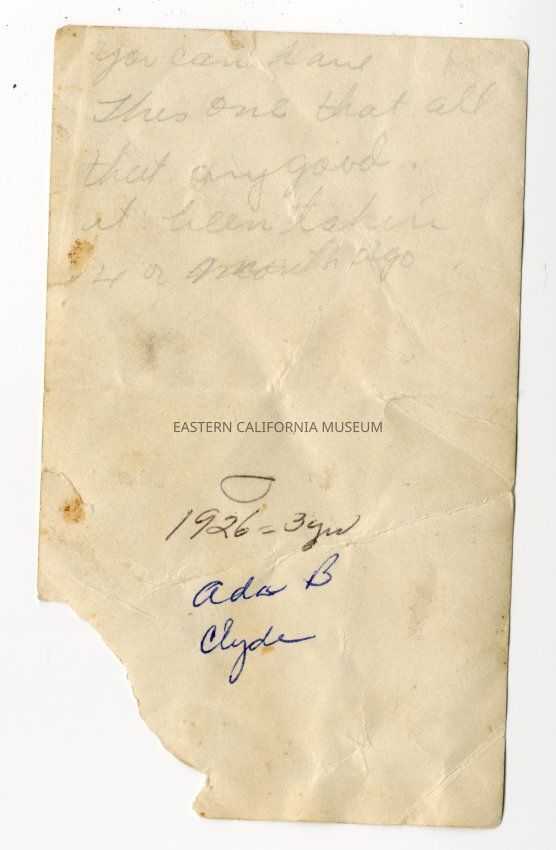 you can have
This one that all
that any good.
it been taken
4 or month ago.
EASTERN CALIFORNIA MUSEUM
1926 = 3 yrs
Ada B
Clyde